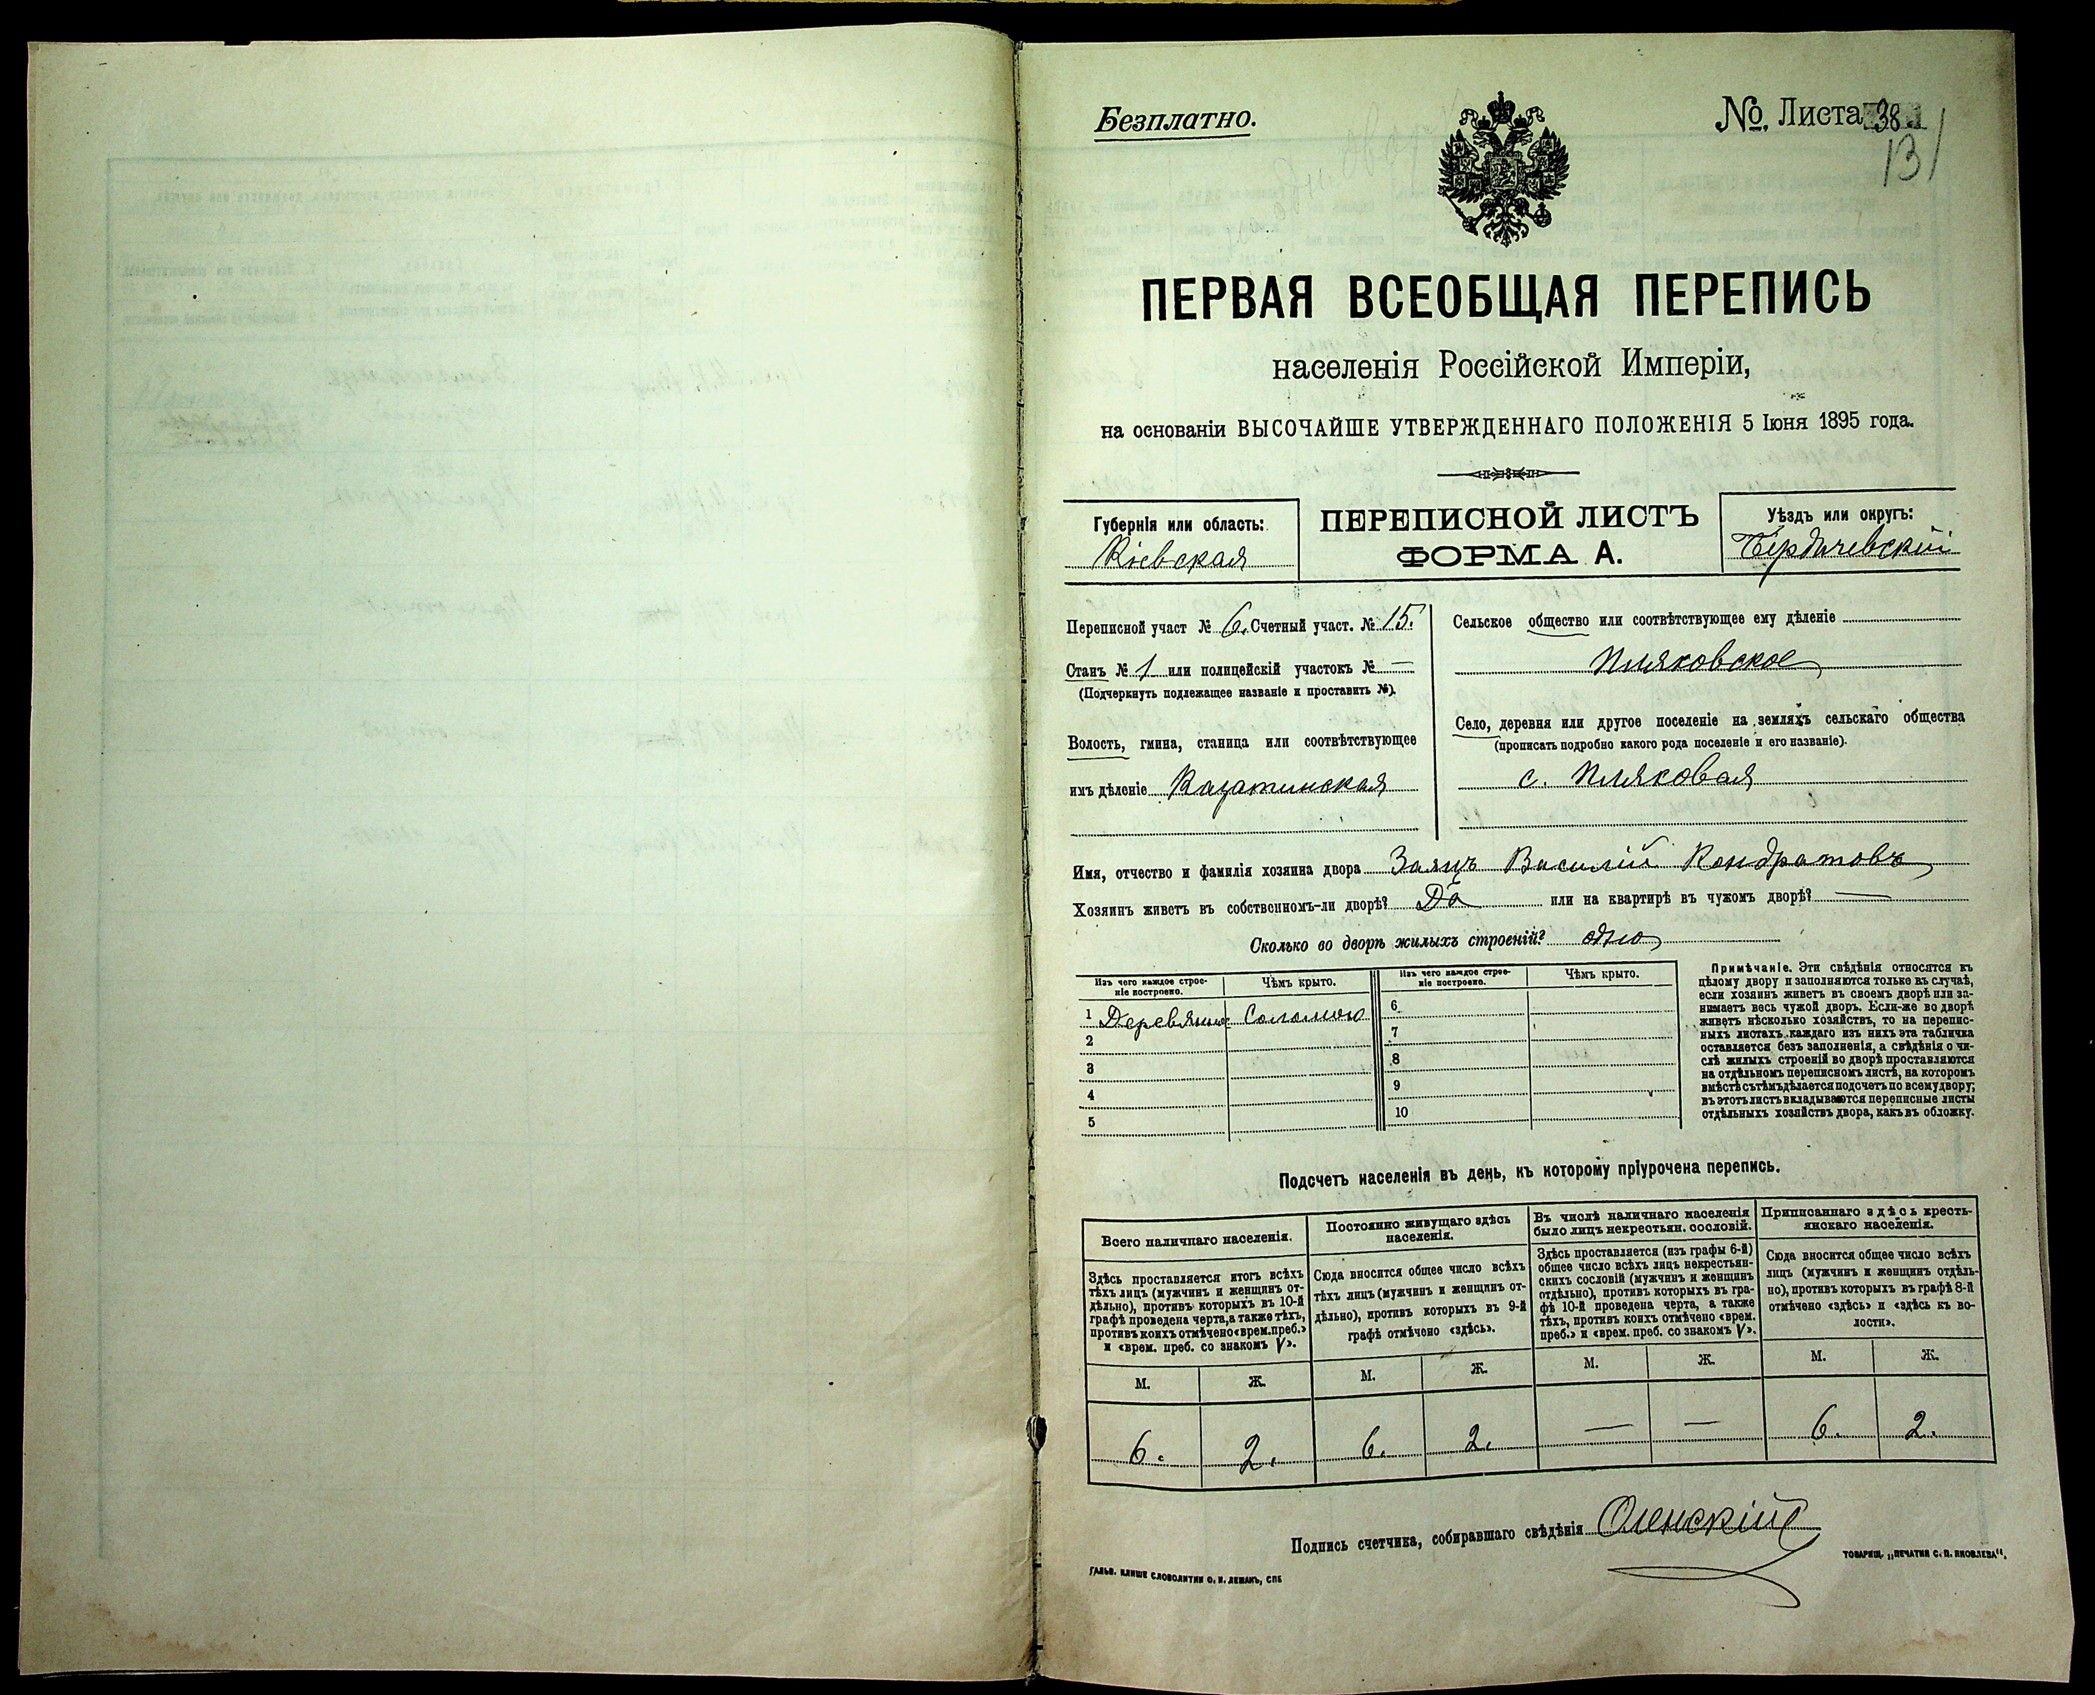 Безплатно.
№ Листа 38.
131
ПЕРВАЯ ВСЕОБЩАЯ ПЕРЕПИСЬ
населенія Россійской Имперіи,
на основаніи ВЫСОЧАЙШЕ УТВЕРЖДЕННАГО ПОЛОЖЕНІЯ 5 Іюня 1895 года.
Губернія или область:
Кіевская
ПЕРЕПИСНОЙ ЛИСТЪ
ФОРМА А.
Уѣздъ или округъ:
Бердичевскій
Переписной участ № 6. Счетный участ. № 15.
Станъ № 1 или полицейскій участокъ № —
(Подчеркнуть подлежащее названіе и проставить №).
Волость, гмина, станица или соотвѣтствующее
имъ дѣленіе Казатинская
Сельское общество или соотвѣтствующее ему дѣленіе
Пляковское
Село, деревня или другое поселеніе на земляхъ сельскаго общества
(прописать подробно какого рода поселеніе и его названіе).
с. Пляковая
Имя, отчество и фамилія хозяина двора Заяцъ Василій Кондратовъ
Хозяинъ живетъ въ собственномъ-ли дворѣ? Да или на квартирѣ въ чужомъ дворѣ? —
Сколько во дворѣ жилыхъ строеній? одно
Изъ чего каждое строе-
ніе построено.
Чѣмъ крыто.
1 Деревянное Соломою
2
3
4
5
Изъ чего каждое строе-
ніе построено.
Чѣмъ крыто.
6
7
8
9
10
Примѣчаніе. Эти свѣдѣнія относятся къ
цѣлому двору и заполняются только въ случаѣ,
если хозяинъ живетъ въ своемъ дворѣ или за-
нимаетъ весь чужой дворъ. Если-же во дворѣ
живетъ нѣсколько хозяйствъ, то на перепис-
ныхъ листахъ каждаго изъ нихъ эта табличка
оставляется безъ заполненія, а свѣдѣнія о чи-
слѣ жилыхъ строеній во дворѣ проставляются
на отдѣльномъ переписномъ листѣ, на которомъ
вмѣстѣ съ тѣмъ дѣлается подсчетъ по всему двору;
въ этотъ листъ вкладываются переписные листы
отдѣльныхъ хозяйствъ двора, какъ въ обложку.
Подсчетъ населенія въ день, къ которому пріурочена перепись.
Всего наличнаго населенія.
Здѣсь проставляется итогъ всѣхъ
тѣхъ лицъ (мужчинъ и женщинъ от-
дѣльно), противъ которыхъ въ 10-й
графѣ проведена черта, а также тѣхъ,
противъ коихъ отмѣчено «врем. преб.»
и «врем. преб. со знакомъ V».
М. Ж.
6. 2.
Постоянно живущаго здѣсь
населенія.
Сюда вносится общее число всѣхъ
тѣхъ лицъ (мужчинъ и женщинъ от-
дѣльно), противъ которыхъ въ 9-й
графѣ отмѣчено «здѣсь».
М. Ж.
6. 2.
Въ числѣ наличнаго населенія
было лицъ некрестьян. сословій.
Здѣсь проставляется (изъ графы 6-й)
общее число всѣхъ лицъ некрестьян-
скихъ сословій (мужчинъ и женщинъ
отдѣльно), противъ которыхъ въ гра-
фѣ 10-й проведена черта, а также
тѣхъ, противъ коихъ отмѣчено «врем.
преб.» и «врем. преб. со знакомъ V».
М. Ж.
— —
Приписаннаго здѣсь кресть-
янскаго населенія.
Сюда вносится общее число всѣхъ
лицъ (мужчинъ и женщинъ отдѣль-
но), противъ которыхъ въ графѣ 8-й
отмѣчено «здѣсь» и «здѣсь къ во-
лости».
М. Ж.
6. 2.
Подпись счетчика, собиравшаго свѣдѣнія Оленскій
ГАЛЬВ. КЛИШЕ СЛОВОЛИТНИ О. И. ЛЕМАНЪ, СПБ
ТОВАРИЩ. „ПЕЧАТНЯ С. П. ЯКОВЛЕВА“.